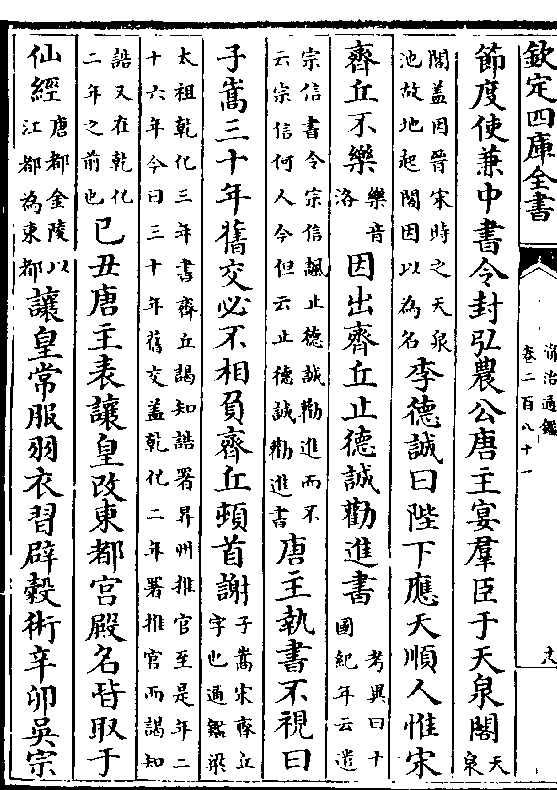 欽定四庫全書
資治通鑑
卷二百八十一
節度使兼中書令封弘農公唐主宴羣臣于天泉閣天泉
閣蓋因晉宋時之天泉
池故地起閣因以為名李德誠曰陛下應天順人惟宋
齊丘不樂樂音
洛因出齊丘止德誠勸進書考異曰十
國紀年云遣
宗信書令宗信諷止德誠勸進而不
云宗信何人今但云止德誠勸進書唐主執書不視曰
子嵩三十年舊交必不相負齊丘頓首謝子嵩宋齊丘
字也通鑑梁
太祖乾化三年書齊丘謁知誥署昇州推官至是年二
十六年今曰三十年舊交蓋乾化二年署推官而謁知
誥又在乾化
二年之前也己丑唐主表讓皇改東都宮殿名皆取于
仙經唐都金陵以
江都為東都讓皇常服羽衣習辟穀術辛卯吳宗